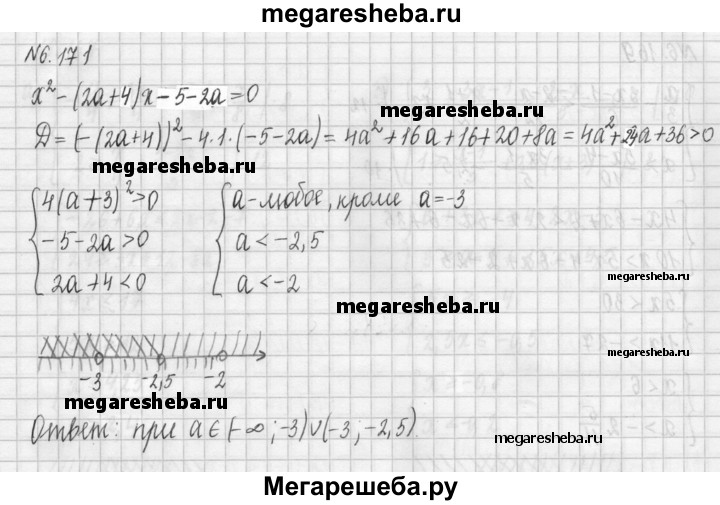 megaresheba.ru
№6.171
x² - (2a+4)x - 5 - 2a = 0
megaresheba.ru
D = (-(2a+4))² - 4·1·(-5-2a) = 4a² + 16a + 16 + 20 + 8a = 4a² + 24a + 36 > 0
megaresheba.ru
{ 4(a+3)² > 0 { a - любое, кроме a = -3
-5 - 2a > 0 a < -2,5
2a + 4 < 0 a < -2
megaresheba.ru
megaresheba.ru
megaresheba.ru
-3 -2,5 -2
megaresheba.ru
Ответ: при a ∈ (-∞; -3) ∪ (-3; -2,5)
megaresheba.ru
Мегарешеба.ру